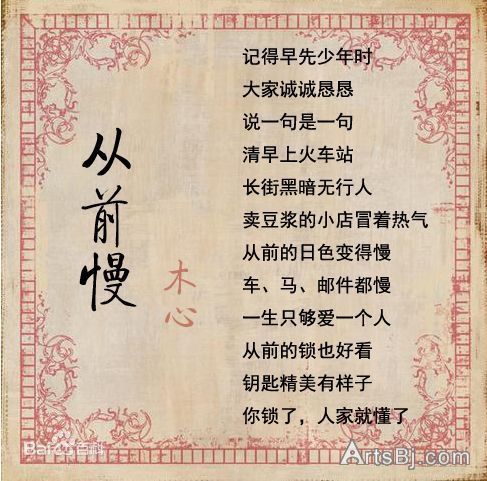 从前慢
木心
记得早先少年时
大家诚诚恳恳
说一句是一句
清早上火车站
长街黑暗无行人
卖豆浆的小店冒着热气
从前的日色变得慢
车、马、邮件都慢
一生只够爱一个人
从前的锁也好看
钥匙精美有样子
你锁了，人家就懂了
Bai百科
ArtsBj.com